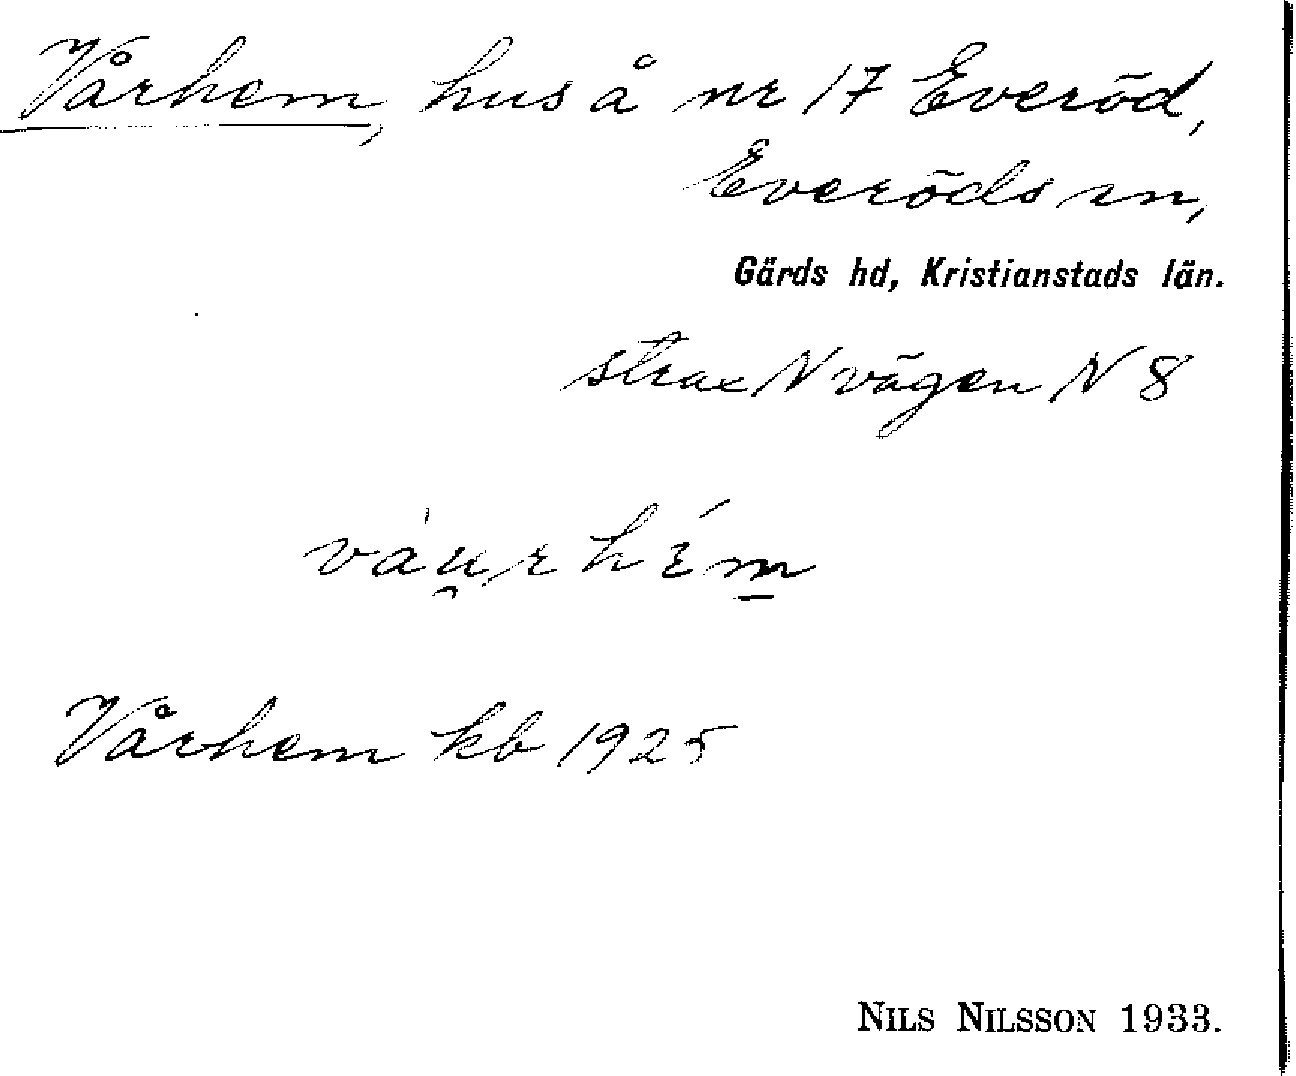 Vårhem, hus å nr 17 Everöd,
Everöds sn,
Gärds hd, Kristianstads län.
strax N vägen N 8
Vårhem kb 1925
NILS NILSSON 1933.